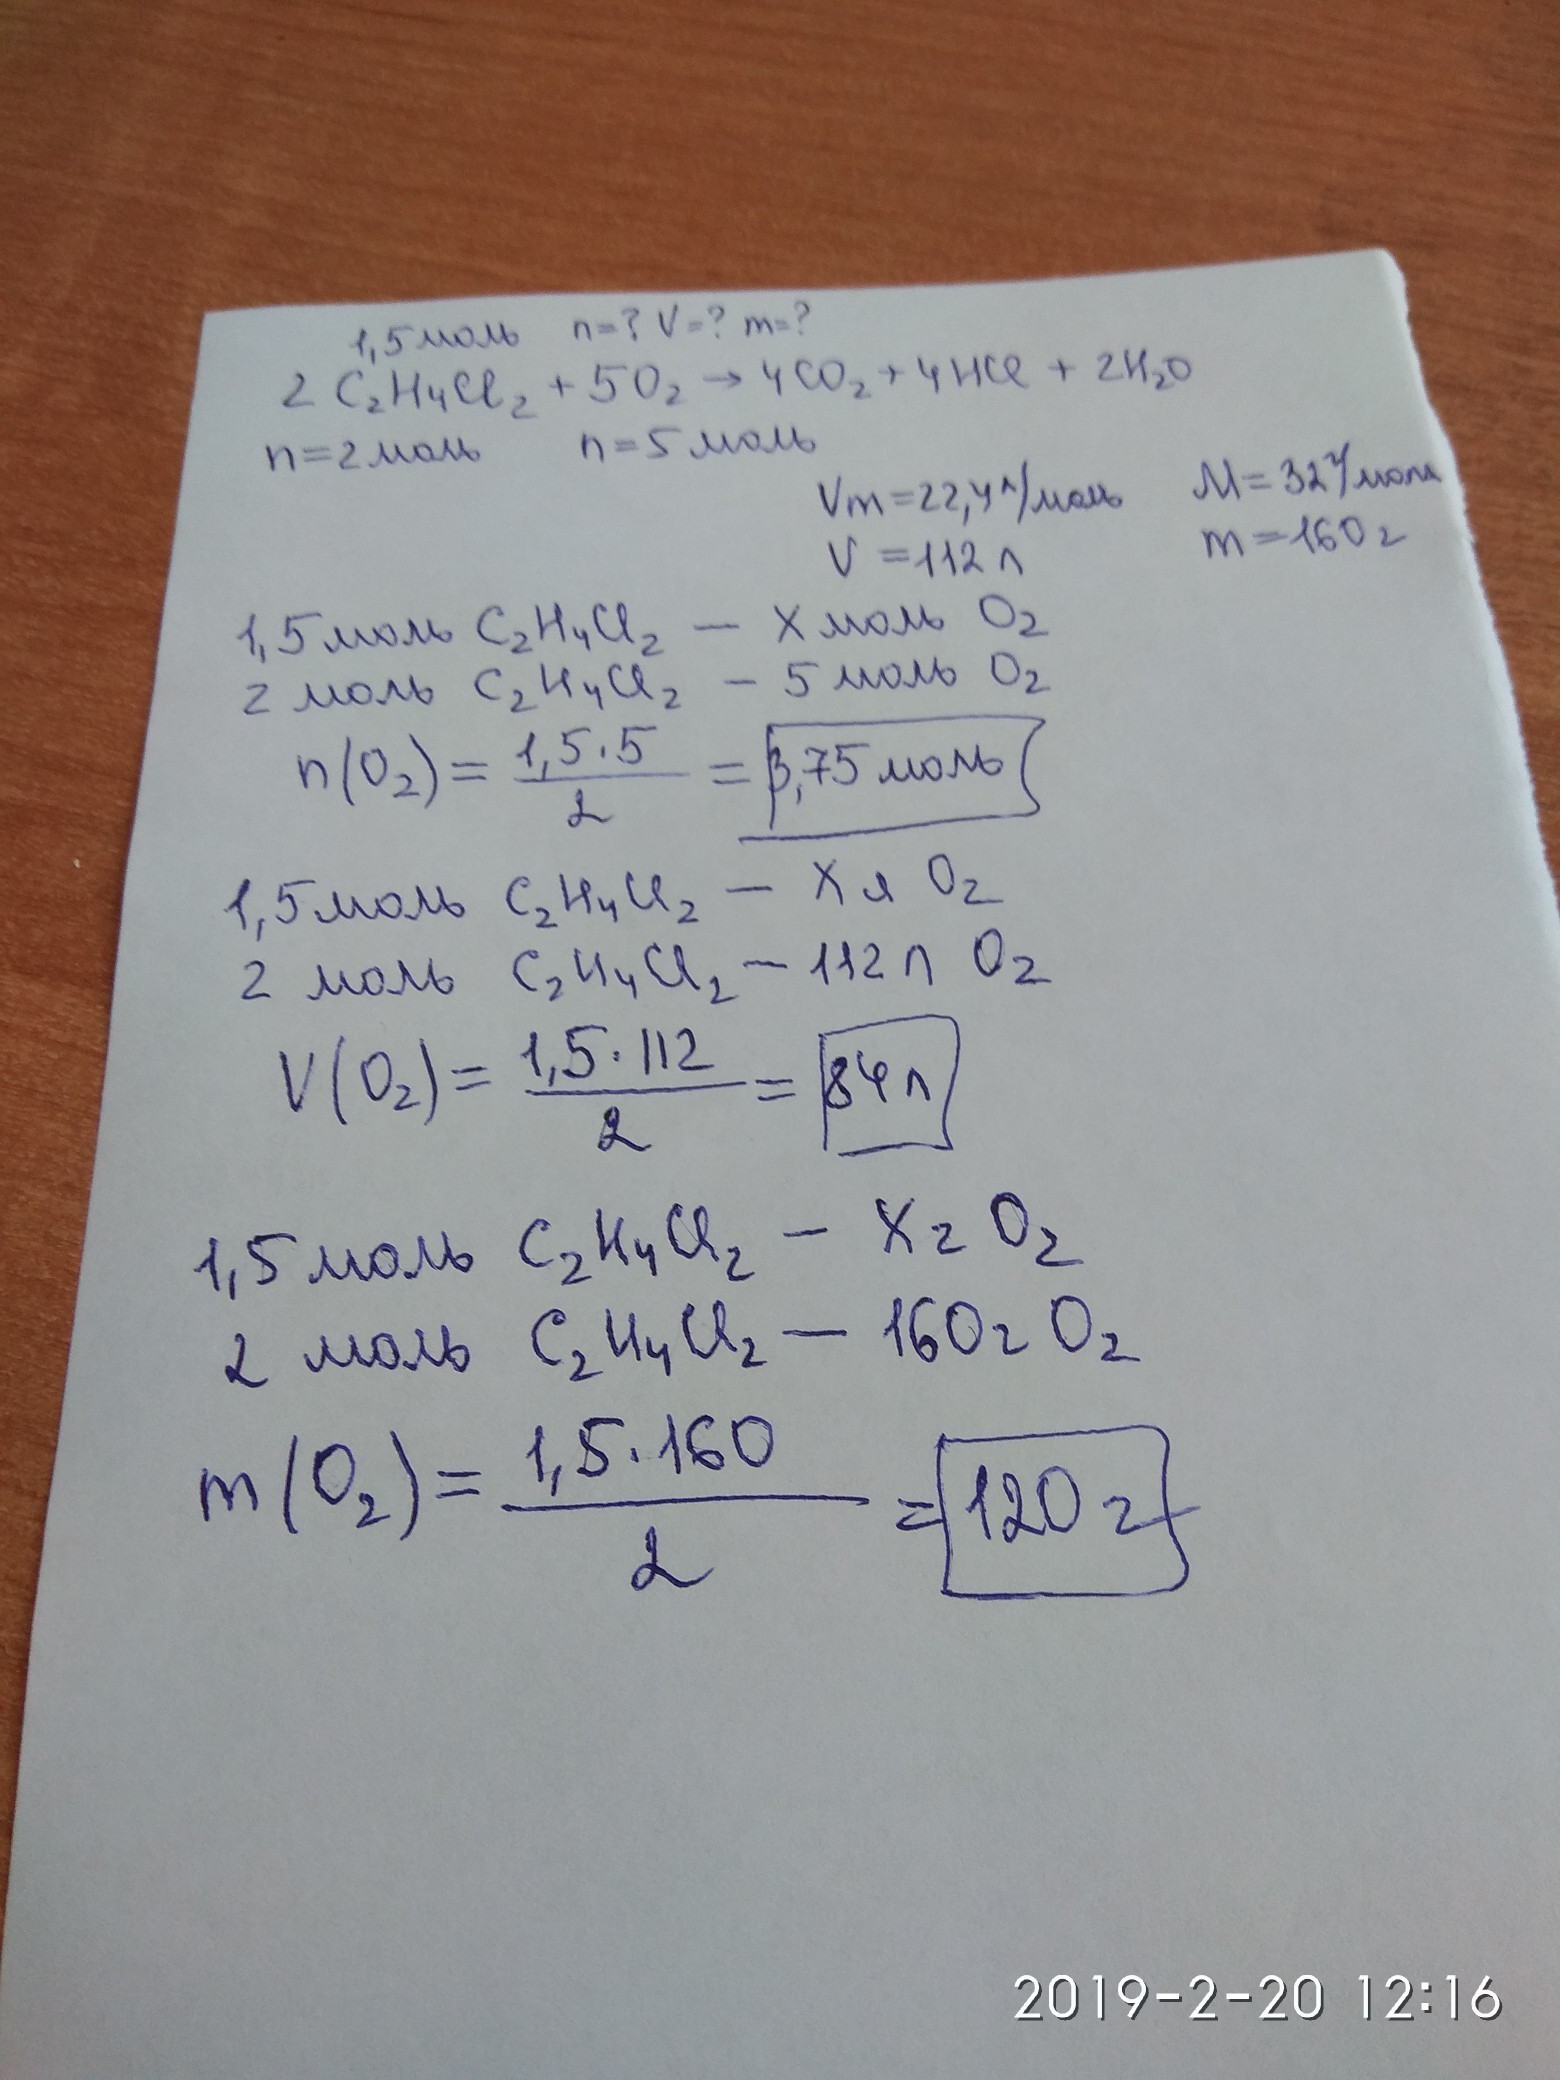 1,5 моль n=? V=? m=?
2 C₂H₄Cl₂ + 5O₂ → 4CO₂ + 4HCl + 2H₂O
n=2 моль n=5 моль
Vm=22,4 л/моль M=32 г/моль
V=112 л m=160 г
1,5 моль C₂H₄Cl₂ — X моль O₂
2 моль C₂H₄Cl₂ — 5 моль O₂
n(O₂) = 1,5·5 / 2 = 3,75 моль
1,5 моль C₂H₄Cl₂ — X л O₂
2 моль C₂H₄Cl₂ — 112 л O₂
V(O₂) = 1,5·112 / 2 = 84 л
1,5 моль C₂H₄Cl₂ — X г O₂
2 моль C₂H₄Cl₂ — 160 г O₂
m(O₂) = 1,5·160 / 2 = 120 г
2019-2-20 12:16